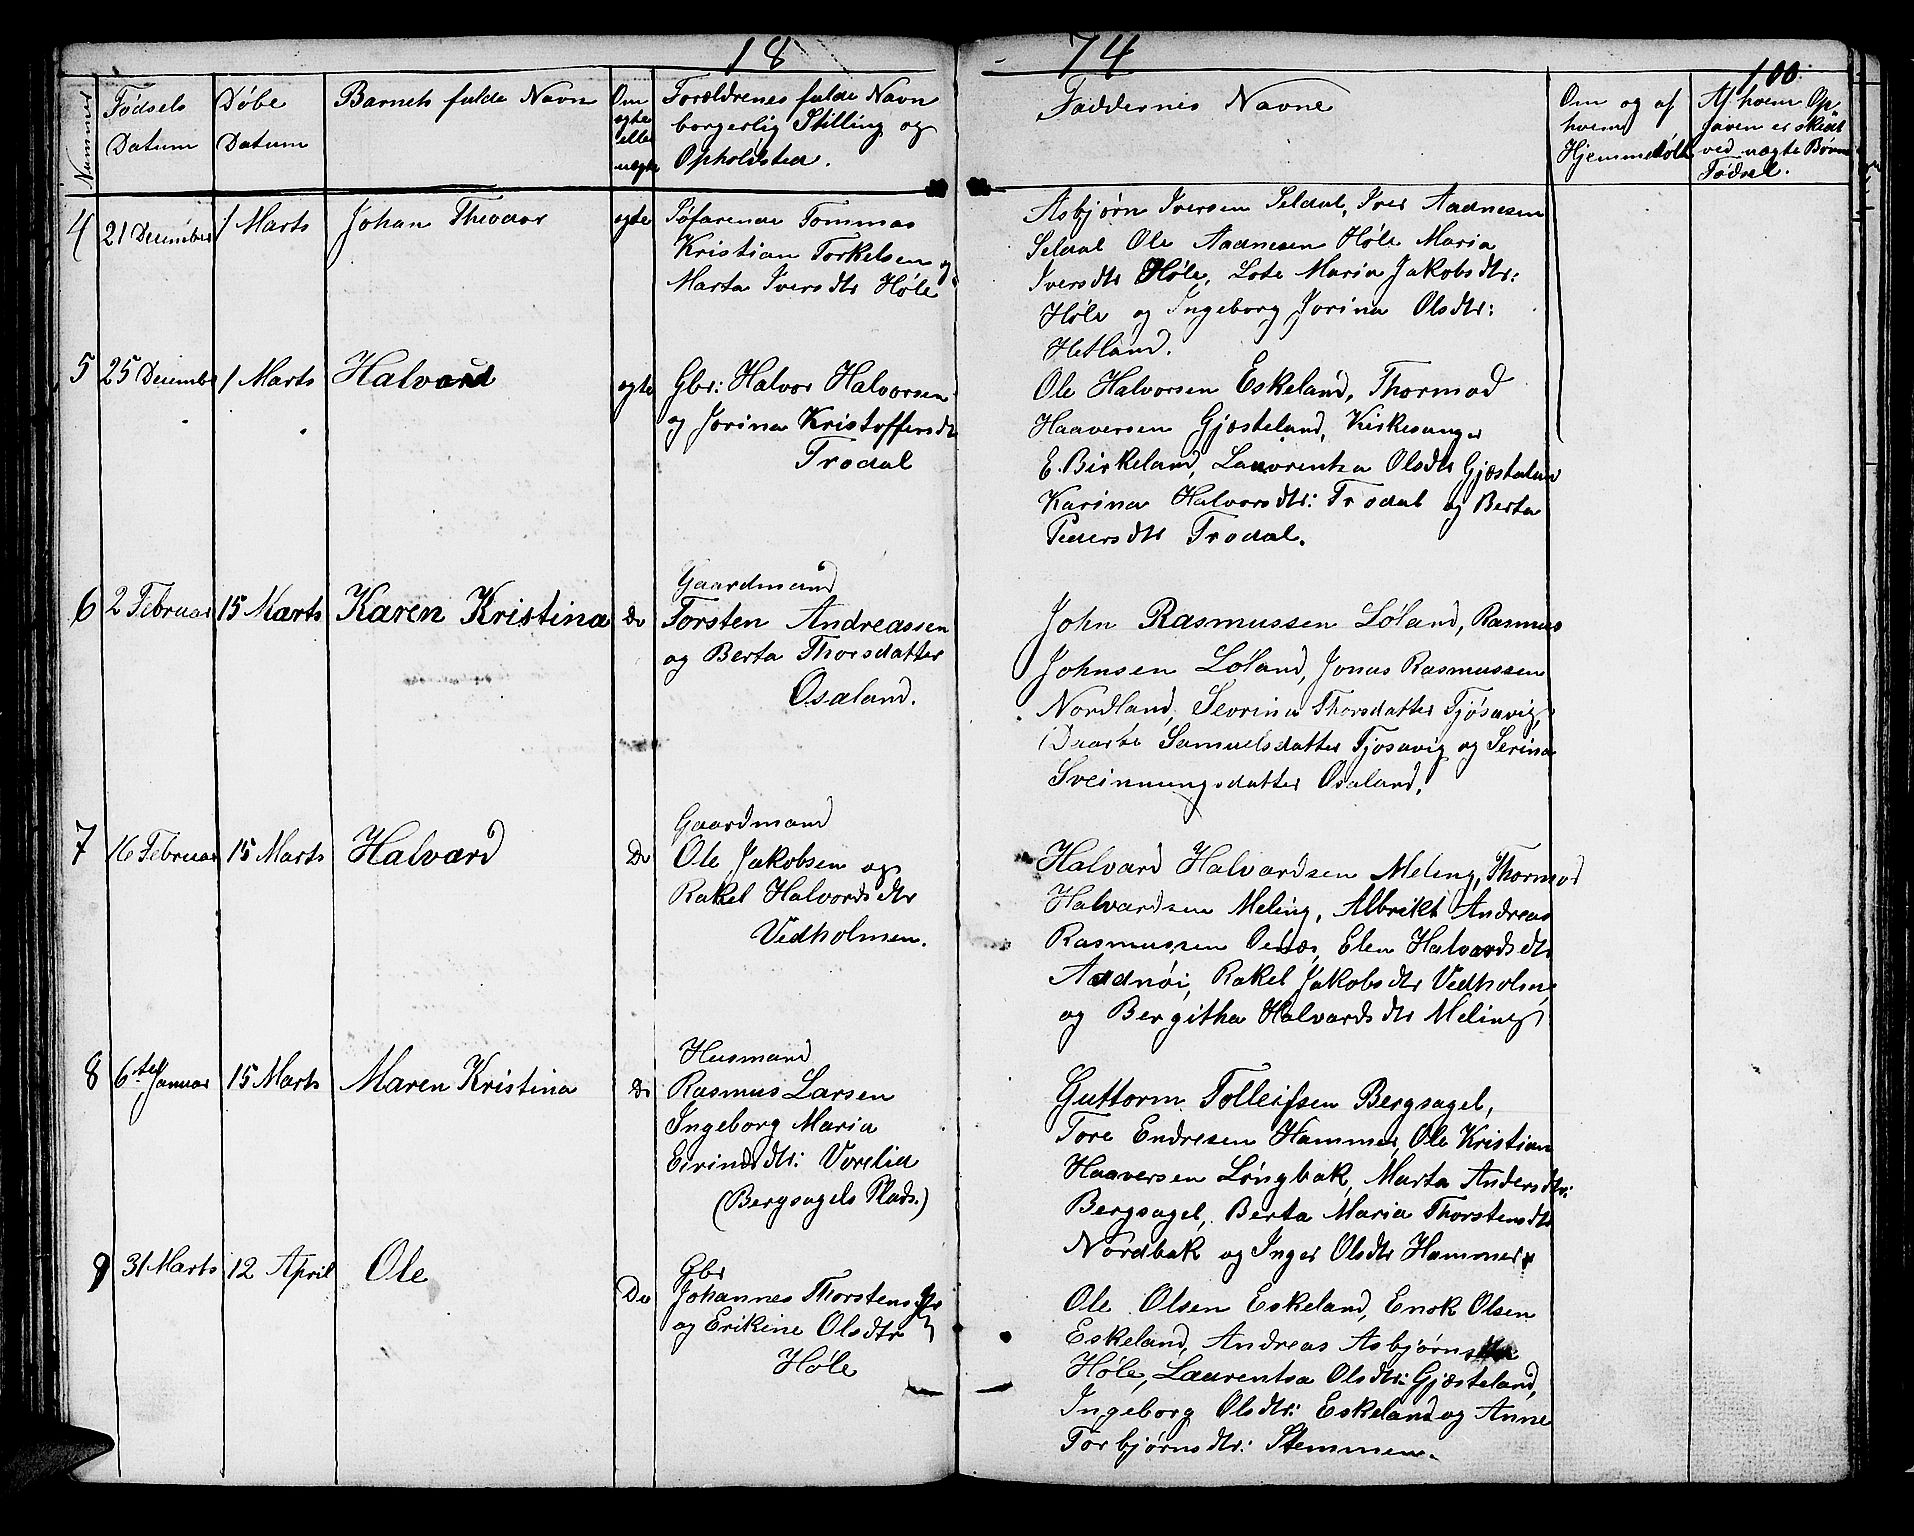 18 74
100.
Nummer
Fødsels Datum
Døbe Datum
Barnets fulde Navn
Om ægte eller uægte
Forældrenes fulde Navn
borgerlig Stilling og
Opholdsted.
Faddernes Navne
Om og af
hvem
Hjemmedøbt
Af hvem Op-
gaven er skeet
ved uægte Børns
Fødsel.
4 21 December 1 Marts Johan Theodor ægte
Søfarende Tommas
Kristian Torkelsen og
Marta Iversdtr Høle
Asbjørn Iversen Seldal, Iver Aadnesen
Seldal Ole Aadnesen Høle Maria
Iversdtr Høle, Lote Maria Jakobsdtr:
Høle og Ingeborg Jorina Olsdtr:
Hetland.
5 25 December 1 Marts Halvard ægte
Gbr: Halvor Halvorsen
og Jorina Kristoffersdtr
Trodal
Ole Halvorsen Eskeland, Thormod
Haaversen Gjæsteland, Kirkesanger
E. Birkeland, Laurentsa Olsdtr Gjæsteland
Karina Halvorsdtr: Trodal og Berta
Pedersdtr Trodal.
6 2 Februar 15 Marts Karen Kristina Do
Gaardmand
Torsten Andreassen
og Berta Thorsdatter
Osaland.
John Rasmussen Løland, Rasmus
Johnsen Løland, Jonas Rasmussen
Nordland, Severina Thorsdatter Tjøsavig,
Daarte Samuelsdatter Tjøsavig og Serina
Sveinnungsdatter Osaland.
7 16 Februar 15 Marts Halvard Do
Gaardmand
Ole Jakobsen og
Rakel Halvordsdtr
Vedholmen.
Halvard Halvardsen Meling, Thormod
Halvardsen Meling, Albrikt Andreas
Rasmussen Elen Halvardsdtr
Aadnøi, Rakel Jakobsdtr Vedholm,
og Bergitha Halvardsdtr Meling
8 6te Januar 15 Marts Maren Kristina Do
Husmand
Rasmus Larsen
Ingeborg Maria
Eivindsdtr: Vorelia
(Bergsagels Plads.)
Guttorm Tolleifsen Bergsagel,
Tore Endresen Hammer, Ole Kristian
Haaversen Longbak, Marta Andersdtr:
Bergsagel, Berta Maria Thorstensdtr
Nordbak og Inger Olsdtr Hammer
9 31 Marts 12 April Ole Do
Gbr
Johannes Thorstens
og Erikine Olsdtr
Høle
Ole Olsen Eskeland, Enok Olsen
Eskeland, Andreas Asbjørns
Høle, Laurentsa Olsdtr: Gjæsteland,
Ingeborg Olsdtr: Eskeland og Anne
Torbjørnsdtr: Stemmen.